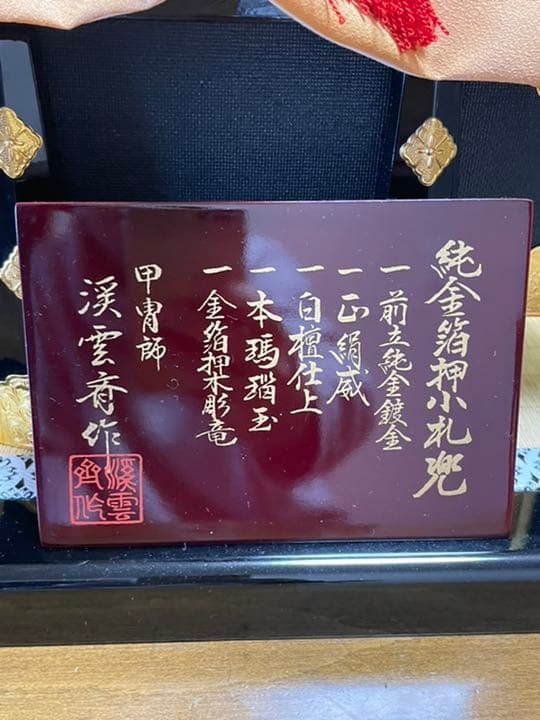 純金箔押小札兜
一 前立純金鍍金
一 正絹威
一 白檀仕上
一 本瑪瑙玉
一 金箔押木彫竜
甲冑師
溪雲斉作
溪雲
斉作